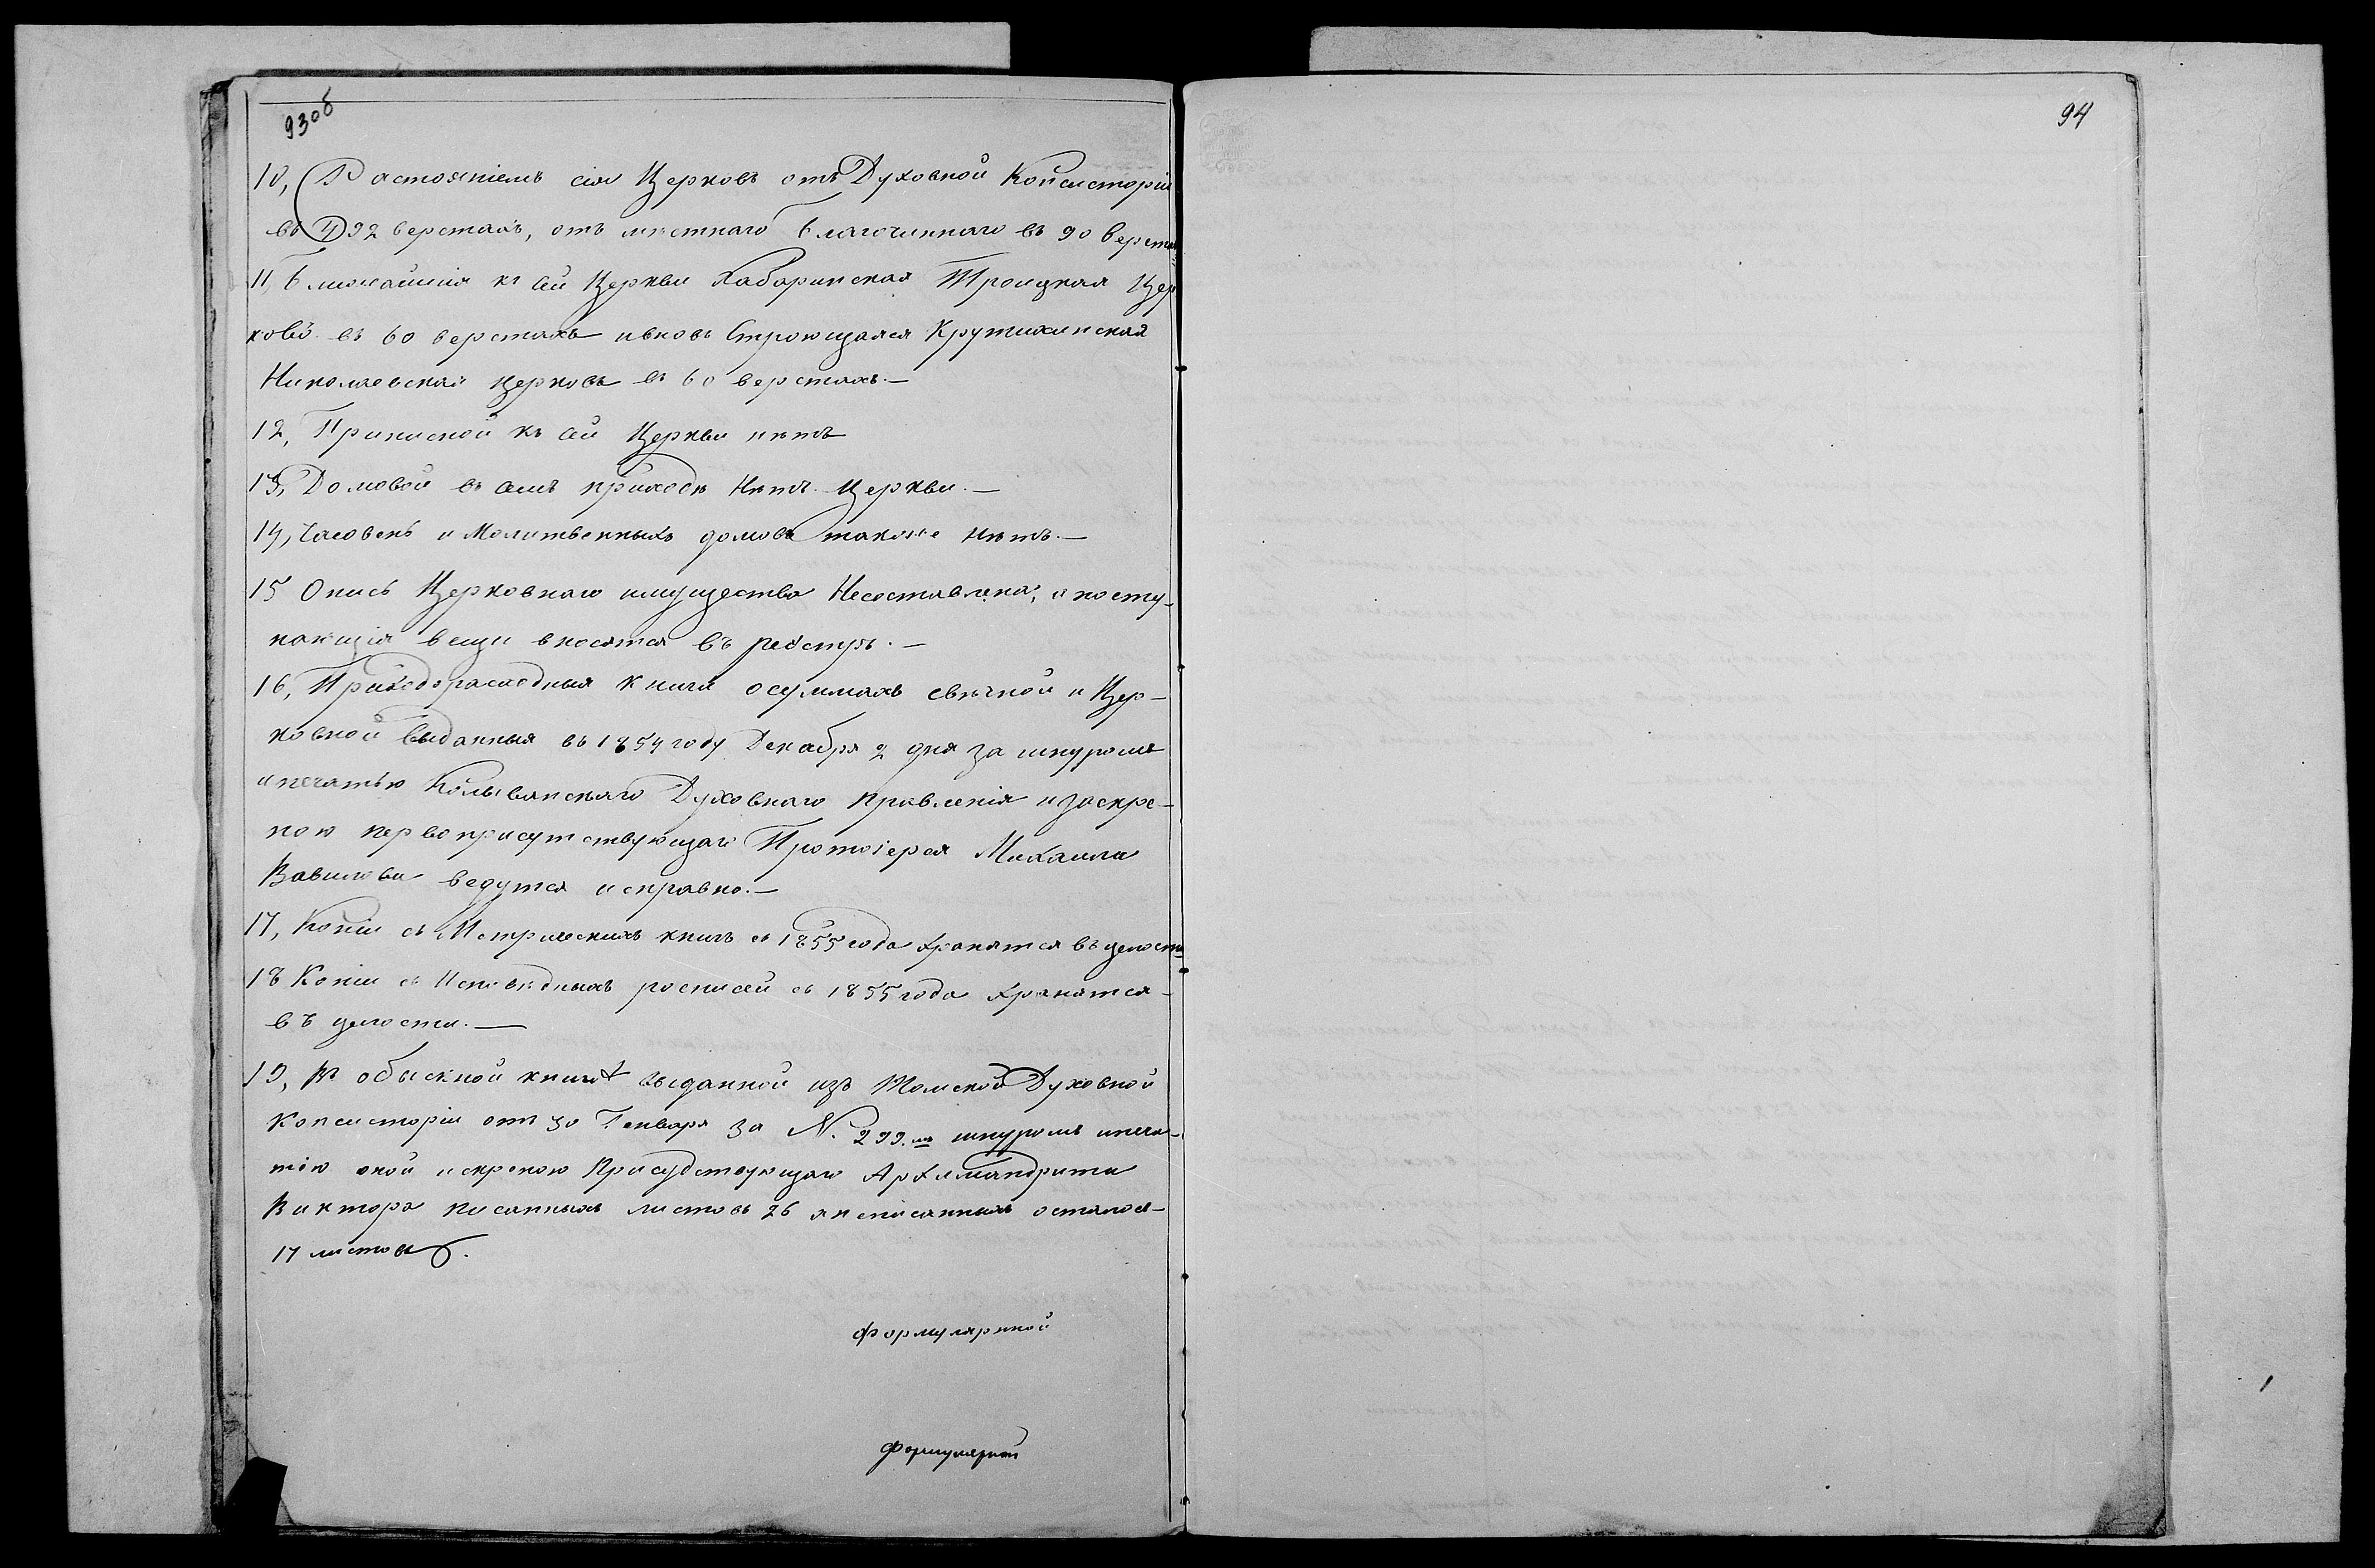 93об
94
10, Растояніемъ сія Церковь отъ Духовной Консисторіи
въ 492 верстахъ, отъ мѣстнаго благочиннаго въ 90 верстахъ
11, Ближайшія къ сей Церкви Хабаринская Троицкая Цер
ковь въ 60 верстахъ и вновь строющаяся Крутихинская
Николаевская церковь въ 60 верстахъ.—
12, Приписной къ сей Церкви нѣтъ
13, Домовой въ семъ приходѣ Нѣтъ Церкви.—
14, Часовень и Молитвенныхъ домовъ также нѣтъ.—
15 Опись Церковнаго имущества Несоставлена, а посту-
пающія вещи вносятся въ реэстръ.—
16, Приходорасходныя книги о суммахъ свѣчной и Цер-
ковной выданныя въ 1854 году Декабря 2 дня за шнуромъ
и печатью Колыванскаго Духовнаго Правленія и заскре-
пою первоприсутствующаго Протоіерея Михаила
Вавилова ведутся исправно.—
17, Копіи съ Метрическихъ книгъ съ 1855 года хранятся въ целости
18 Копіи съ Исповѣдныхъ росписей съ 1855 года Хранятся-
въ целости.—
19, Въ обыскной книгѣ выданной изъ Томской Духовной
Консисторіи отъ 30 Генваря за N. 299.мъ шнуромъ и печа-
тію оной и скрепою Присудствующаго Архимандрита
Виктора писанныхъ листовъ 26 а неписанныхъ осталося-
17 листовъ.
Формулярной
Формулярной